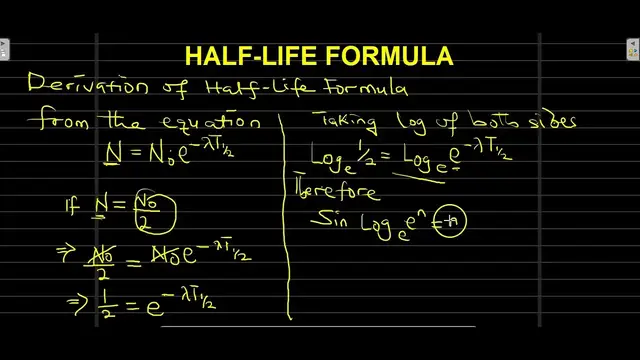 HALF-LIFE FORMULA
Derivation of Half-Life Formula
from the equation
N = N₀e^-λT½
If N = N₀/2
⇒ N₀/2 = N₀e^-λT½
⇒ 1/2 = e^-λT½
Taking log of both sides
Logₑ 1/2 = Logₑ e^-λT½
Therefore
Sin Logₑ eⁿ = n